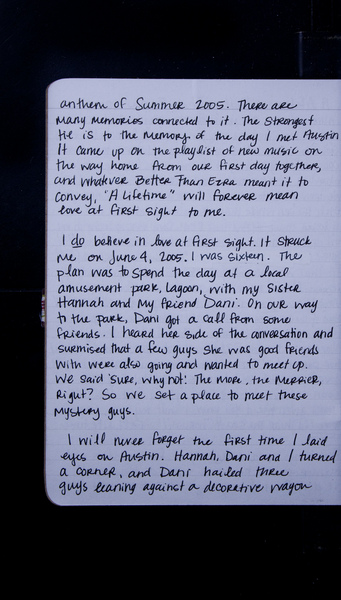 anthem of Summer 2005. There are
many memories connected to it. The strongest
tie is to the memory of the day I met Austin
It came up on the playlist of new music on
the way home from our first day together,
and whatever Better Than Ezra meant it to
convey, "A Lifetime" will forever mean
love at first sight to me.
I do believe in love at first sight. It struck
me on June 4, 2005. I was sixteen. The
plan was to spend the day at a local
amusement park, Lagoon, with my sister
Hannah and my friend Dani. On our way
to the park, Dani got a call from some
friends. I heard her side of the conversation and
surmised that a few guys she was good friends
with were also going and wanted to meet up.
We said 'sure, why not! The more, the merrier,
right? So we set a place to meet these
mystery guys.
I will never forget the first time I laid
eyes on Austin. Hannah, Dani and I turned
a corner, and Dani hailed three
guys leaning against a decorative wagon